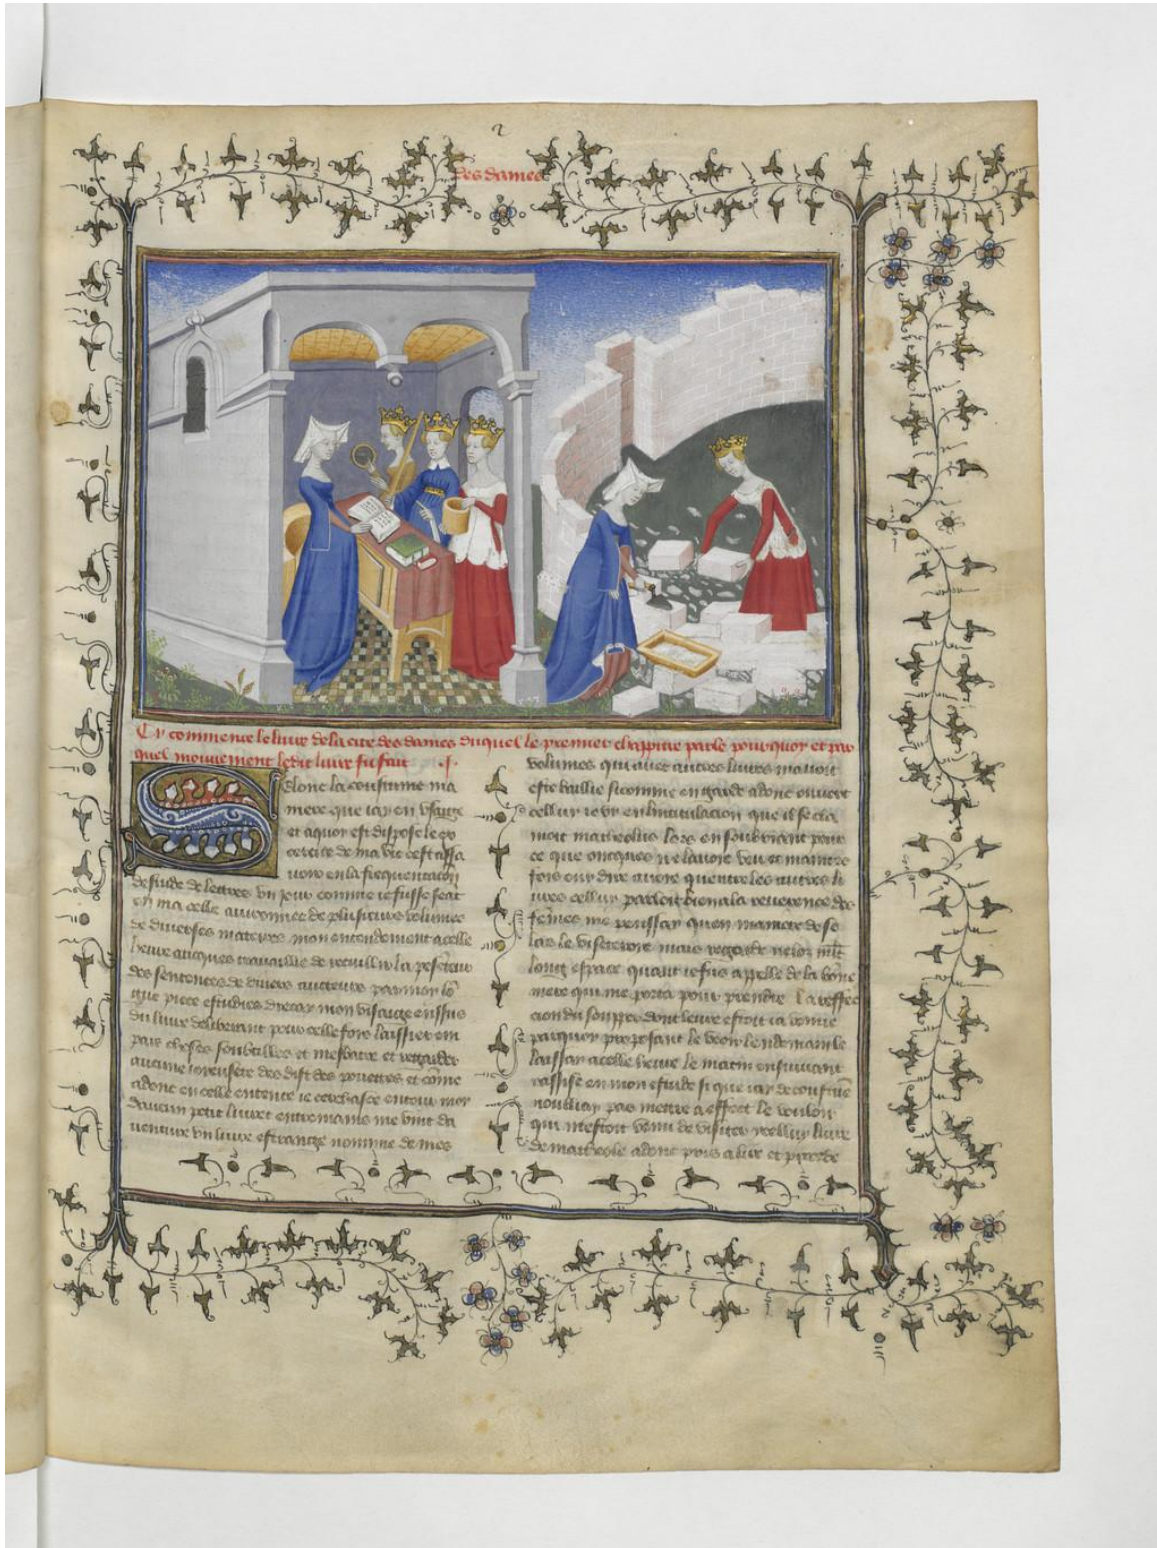 des dames
Cy commence le livre de la cite des dames duquel le premier chappitre parle pour quoy et par
quel mouvement ledit livre fu fait .I.
Selonc la coustume ma
niere que iay en usaige
et a quoy est dispose le ex
ercite de ma vie cest assa
voir en la frequentacion
destude de lettres un iour comme ie fusse seant
en ma celle avironnee de plusieurs volumes
de diverses matieres mon entendement a celle
heure aucques travaillie de recuillir la pesenteur
des sentences de divers aucteurs par moy lo
gue piece estudies drecay mon visaige ensus
du livre deliberant pour celle fois laissier em
paix choses soubtilles et mesbatre et regarder
aucune ioyeusete des dist des pouettes et comme
adonc en celle entente ie cerchasse entour moy
daucun petit livret entre mains me vint da
venture un livre estrange non mie de mes
volumes qui avec autres livres mavoit
este baillie si comme en garde adonc ouvert
cellui ie vy en lintitulacion que il se cla
moit matheolus lors en soubriant pour
ce que oncques ne lavoie veu et maintes
fois ouy dire avoie quentre les autres li
vres cellui parloit bien a la reverence des
femes me penssay quen maniere de so
las le visiteroie mais regarde ne loz mlt
long espace quant ie fus appelle de la bonne
mere qui me porta pour prendre la reffec
cion du soupper dont leure estoit ia venue
par quoy proposant le veoir lendemain le
laissay a celle heure le matin ensuivant
rassise en mon estude si que iay de coustume
noubliay pas mettre a effect le vouloir
qui mestoit venu de visiter icellui livre
de matheole adonc pris a lire et proceder